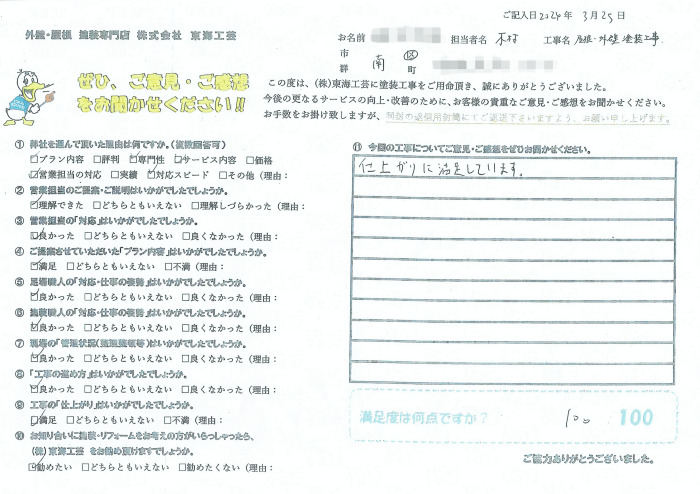 ご記入日2024年 3月25日
外壁・屋根 塗装専門店 株式会社 東海工芸
お名前 担当者名 木村 工事名 屋根・外壁塗装工事
市 郡 南 区 町
ぜひ、ご意見・ご感想をお聞かせください!!
この度は、(株)東海工芸に塗装工事をご用命頂き、誠にありがとうございました。
今後の更なるサービスの向上・改善のために、お客様の貴重なご意見・ご感想をお聞かせください。
お手数をお掛け致しますが、同封の返信用封筒にてご返送下さいますよう、お願い申し上げます。
① 弊社を選んで頂いた理由は何ですか。(複数回答可)
☑プラン内容 □評判 ☑専門性 ☑サービス内容 □価格
☑営業担当の対応 □実績 ☑対応スピード □その他(理由:
② 営業担当のご提案・ご説明はいかがでしたでしょうか。
☑理解できた □どちらともいえない □理解しづらかった(理由:
③ 営業担当の「対応」はいかがでしたでしょうか。
☑良かった □どちらともいえない □良くなかった(理由:
④ ご提案させていただいた「プラン内容」はいかがでしたでしょうか。
☑満足 □どちらともいえない □不満(理由:
⑤ 足場職人の「対応・仕事の姿勢」はいかがでしたでしょうか。
☑良かった □どちらともいえない □良くなかった(理由:
⑥ 塗装職人の「対応・仕事の姿勢」はいかがでしたでしょうか。
☑良かった □どちらともいえない □良くなかった(理由:
⑦ 現場の「管理状況(整理整頓等)はいかがでしたでしょうか。
☑良かった □どちらともいえない □良くなかった(理由:
⑧ 「工事の進め方」はいかがでしたでしょうか。
☑良かった □どちらともいえない □良くなかった(理由:
⑨ 工事の「仕上がり」はいかがでしたでしょうか。
☑満足 □どちらともいえない □不満(理由:
⑩ お知り合いに塗装・リフォームをお考えの方がいらっしゃったら、
(株)東海工芸 をお勧め頂けますでしょうか。
☑勧めたい □どちらともいえない □勧めたくない(理由:
⑪ 今回の工事についてご意見・ご感想をぜひお聞かせください。
仕上がりに満足しています。
満足度は何点ですか? 100 100
ご協力ありがとうございました。